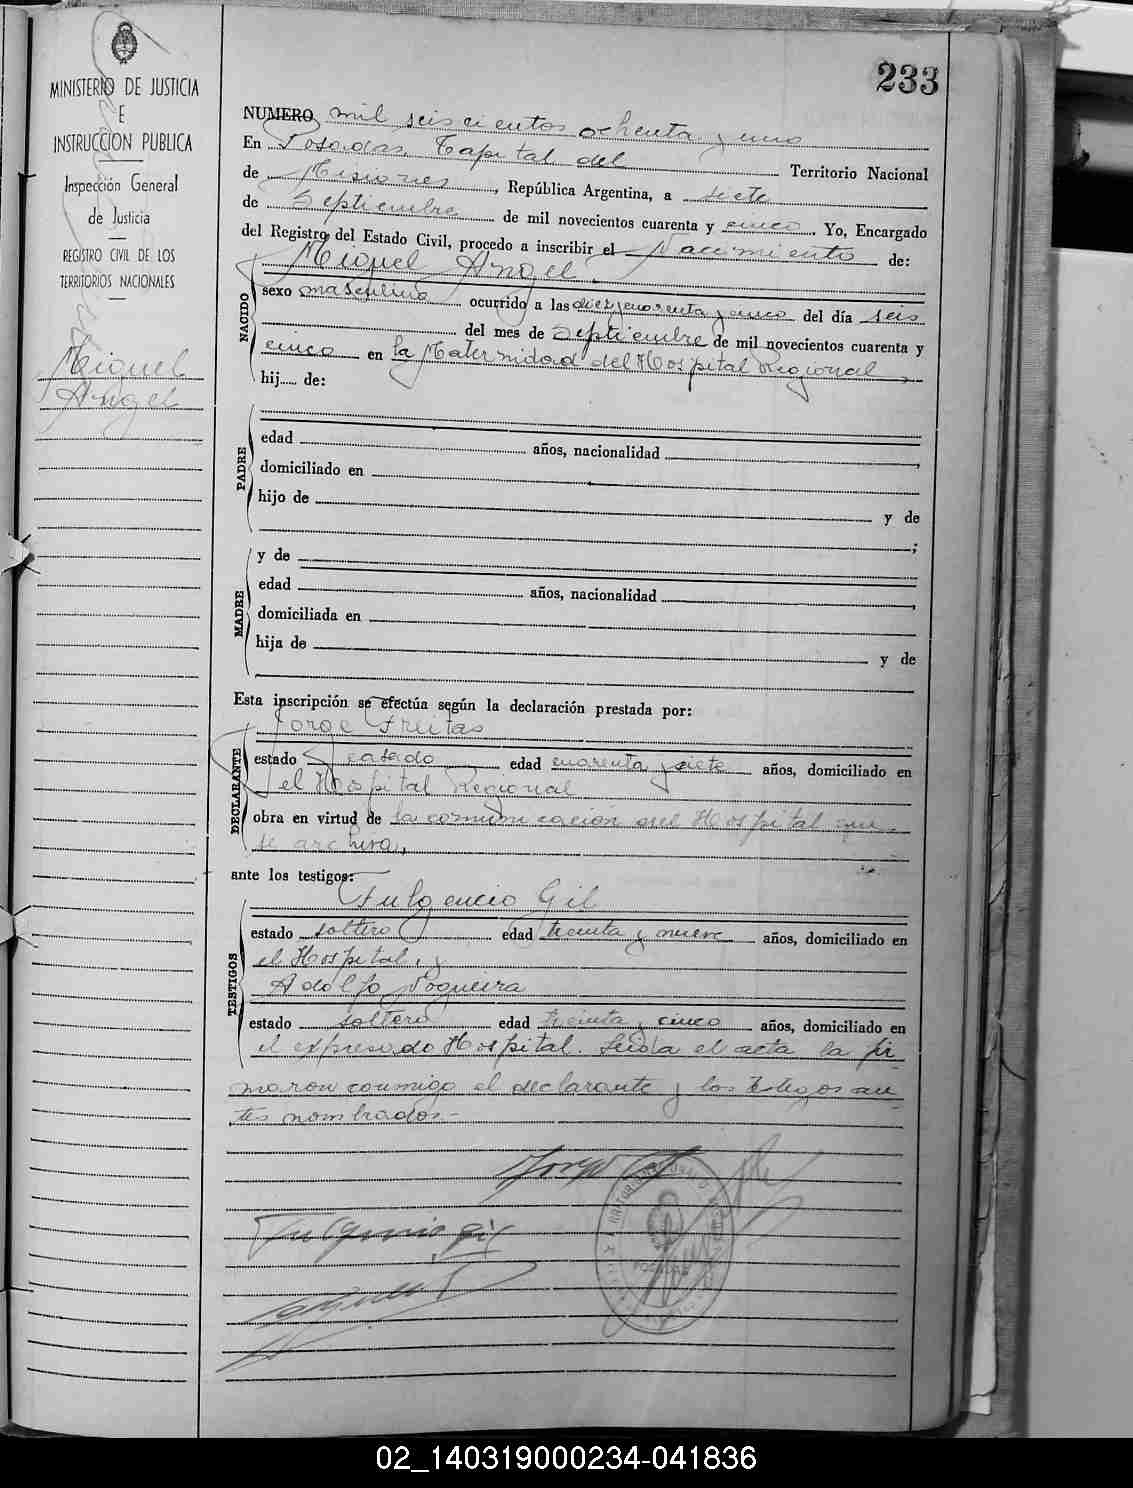 233
MINISTERIO DE JUSTICIA
E
INSTRUCCION PUBLICA
Inspección General
de Justicia
REGISTRO CIVIL DE LOS
TERRITORIOS NACIONALES
Miguel
Angel
NUMERO mil seiscientos ochenta y uno
En Posadas, Capital del Territorio Nacional
de Misiones, República Argentina, a siete
de Septiembre de mil novecientos cuarenta y cinco. Yo, Encargado
del Registro del Estado Civil, procedo a inscribir el Nacimiento de:
Miguel Angel
NACIDO
sexo masculino ocurrido a las diez y cuarenta y cinco del día seis
del mes de Septiembre de mil novecientos cuarenta y
cinco en la Maternidad del Hospital Regional,
hij..... de:
PADRE
edad años, nacionalidad ,
domiciliado en
hijo de y de
;
MADRE
y de
edad años, nacionalidad ,
domiciliada en
hija de y de
Esta inscripción se efectúa según la declaración prestada por:
Jorge Freitas
DECLARANTE
estado casado edad cuarenta y siete años, domiciliado en
el Hospital Regional
obra en virtud de la comunicación del Hospital que
se archiva,
ante los testigos:
Fulgencio Gil
TESTIGOS
estado soltero edad treinta y nueve años, domiciliado en
el Hospital, y
Adolfo Nogueira
estado soltero edad treinta y cinco años, domiciliado en
el expresado Hospital. Leida el acta la fir
maron conmigo el declarante y los testigos an
tes nombrados.-
Fulgencio Gil
02_140319000234-041836